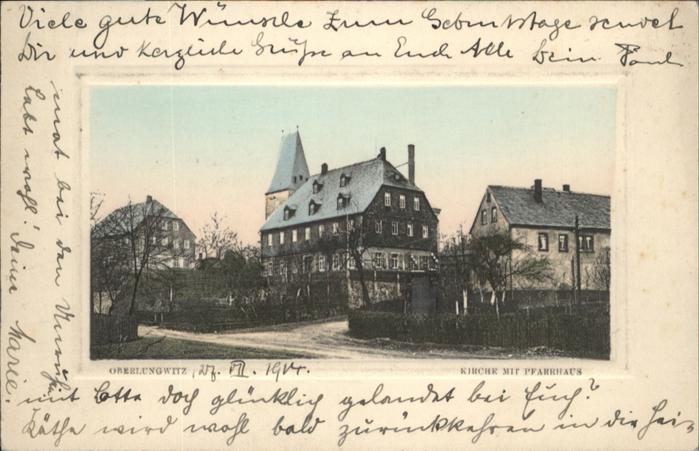 Viele gute Wünsche zum Geburtstage sendet
Dir und herzliche Grüße an Euch Alle Dein Paul
OBERLUNGWITZ, 27. VII. 1914.
KIRCHE MIT PFARRHAUS
mit Lotte doch glücklich gelandet bei Euch?
Käthe wird wohl bald zurückkehren in die Hei-
mat bei den
Lebt wohl! Deine Marie.